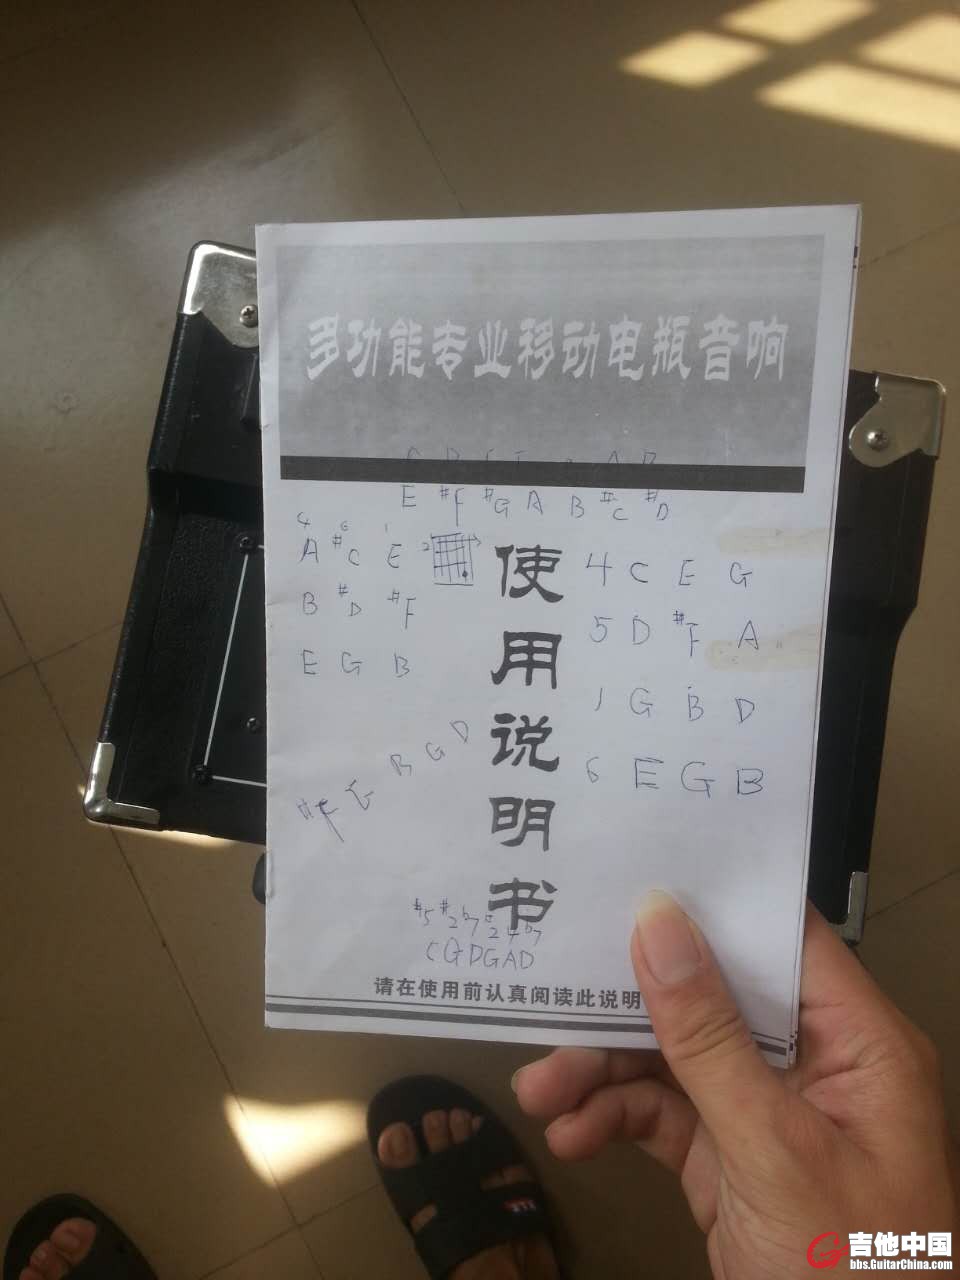 多功能专业移动电瓶音响
E #F #G A B #C #D
4 6 1
A #C E
B #D #F
E G B
2
使用说明书
4 C E G
5 D #F A
1 G B D
6 E G B
#F E B G D
#5 #2 b7 2 4 b7
C G D G A D
请在使用前认真阅读此说明
吉他中国
bbs.GuitarChina.com